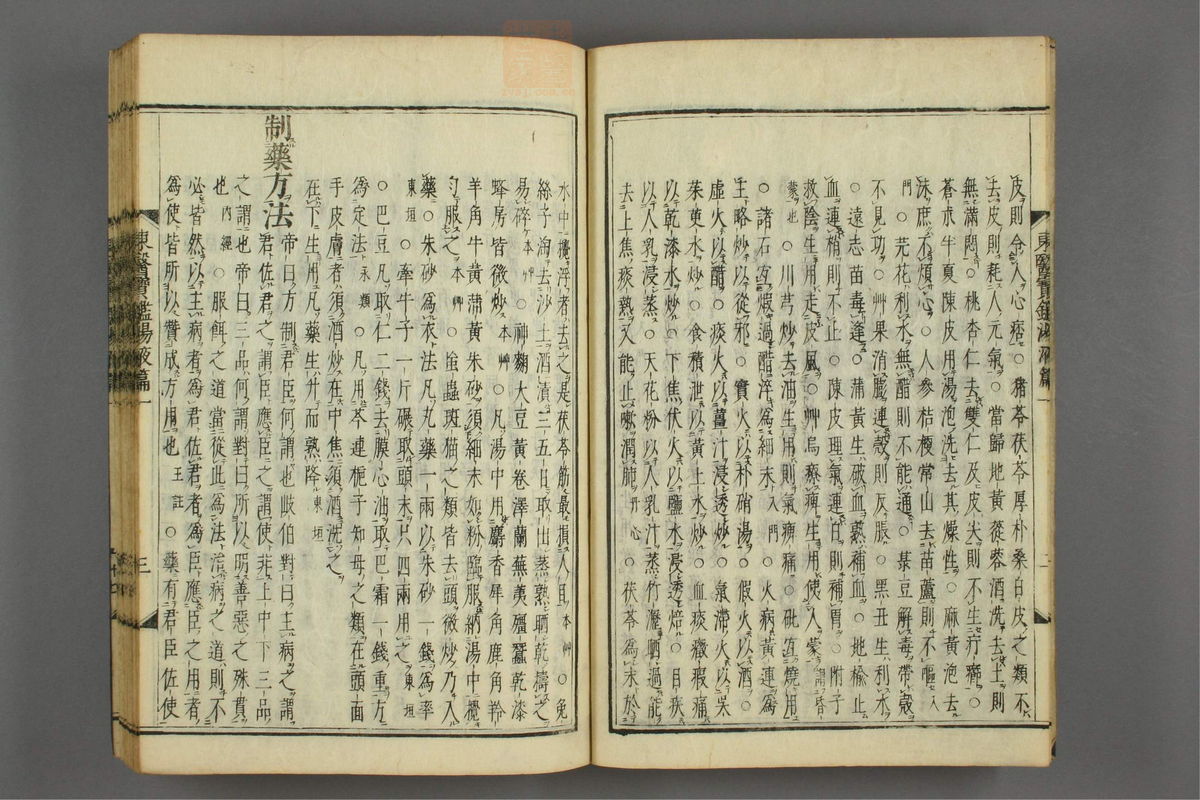 皮則令人心痞○猪苓茯苓厚朴桑白皮之類不
去皮則耗人元氣○當歸地黃蓯蓉酒洗去土則
無滿悶○桃杏仁去雙仁及皮尖則不生疔癤○
蒼朮半夏陳皮用湯泡洗去其燥性○麻黃泡去
沫庶不煩心○人參桔梗常山去苗蘆則不嘔入
門○芫花利水無醋則不能通○菉豆解毒帶殼
不見功○艸果消膨連殼則反脹○黑丑生利水
○遠志苗毒逢○蒲黃生破血熟補血○地楡止
血連稍則不止○陳皮理氣連白則補胃○附子
救陰生用走皮風○艸烏療痺生用使人蒙謂昏
蒙也○川芎炒去油生用則氣痺痛○砒宜燒用
○諸石宜煆過醋淬爲細末入門○火病黃連爲
主略炒以從邪○實火以朴硝湯○假火以酒○
虛火以醋○痰火以薑汁浸透炒○氣滯火以吳
茱萸水炒○食積泄以黃土水炒○血痰癥瘕痛
以乾漆水炒○下焦伏火以鹽水浸透焙○目疾
以人乳浸蒸○天花粉以人乳汁蒸竹瀝晒過能
去上焦痰熱又能止嗽潤肺丹心○茯苓爲末於
東醫寶鑑湯液篇一
二
水中攪浮者去之是茯苓筋最損人目本艸○免
絲子淘去沙土酒漬三五日取出蒸熟晒乾擣之
易碎本艸○神麴大豆黃卷澤蘭蕪荑殭蠶乾漆
蜂房皆微炒本艸○凡湯中用麝香犀角鹿角羚
羊角牛黃蒲黃朱砂須細末如粉臨服納湯中攪
勻服之本艸○䖟蟲斑猫之類皆去頭微炒乃入
藥○朱砂爲衣法凡丸藥一兩以朱砂一錢爲率
東垣○牽牛子一斤碾取頭末只四兩用之東垣
○巴豆凡取仁二錢去膜心油取巴霜一錢重方
爲定法永類○凡用芩連梔子知母之類在頭面
手皮膚者須酒炒在中焦須酒洗之
在下生用凡藥生升而熟降東垣
制藥方法
帝曰方制君臣何謂也歧伯對曰主病之謂
君佐君之謂臣應臣之謂使非上中下三品
之謂也帝曰三品何謂對曰所以明善惡之殊貫
也內經○服餌之道當從此爲法治病之道則不
必皆然以主病者爲君佐君者爲臣應臣之用者
爲使皆所以賛成方用也王註○藥有君臣佐使
東醫寶鑑湯液篇一
三